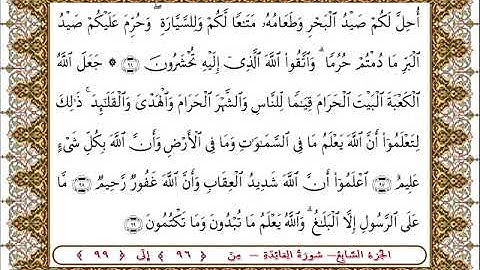 أُحِلَّ لَكُمْ صَيْدُ ٱلْبَحْرِ وَطَعَامُهُۥ مَتَـٰعًا لَّكُمْ وَلِلسَّيَّارَةِ ۖ وَحُرِّمَ عَلَيْكُمْ صَيْدُ
ٱلْبَرِّ مَا دُمْتُمْ حُرُمًا ۗ وَٱتَّقُوا۟ ٱللَّهَ ٱلَّذِىٓ إِلَيْهِ تُحْشَرُونَ ﴿٩٦﴾ ۞ جَعَلَ ٱللَّهُ
ٱلْكَعْبَةَ ٱلْبَيْتَ ٱلْحَرَامَ قِيَـٰمًا لِّلنَّاسِ وَٱلشَّهْرَ ٱلْحَرَامَ وَٱلْهَدْىَ وَٱلْقَلَـٰٓئِدَ ۚ ذَٰلِكَ
لِتَعْلَمُوٓا۟ أَنَّ ٱللَّهَ يَعْلَمُ مَا فِى ٱلسَّمَـٰوَٰتِ وَمَا فِى ٱلْأَرْضِ وَأَنَّ ٱللَّهَ بِكُلِّ شَىْءٍ
عَلِيمٌ ﴿٩٧﴾ ٱعْلَمُوٓا۟ أَنَّ ٱللَّهَ شَدِيدُ ٱلْعِقَابِ وَأَنَّ ٱللَّهَ غَفُورٌ رَّحِيمٌ ﴿٩٨﴾ مَّا
عَلَى ٱلرَّسُولِ إِلَّا ٱلْبَلَـٰغُ ۗ وَٱللَّهُ يَعْلَمُ مَا تُبْدُونَ وَمَا تَكْتُمُونَ ﴿٩٩﴾
الجزء السابع - سورة المائدة - من ﴿ ٩٦ ﴾ إلى ﴿ ٩٩ ﴾